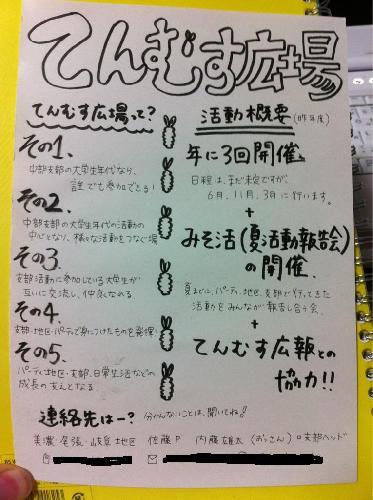 てんむす広場
てんむす広場って?
その1.
中部支部の大学生年代なら、
誰でも参加できる!
その2.
中部支部の大学生年代の活動の
中心となり、様々な活動をつなぐ場
その3.
支部活動に参加している大学生が
互いに交流し、仲良くなれる
その4.
支部・地区・パーティで身につけたものを発揮
その5.
パーティ・地区・支部、日常生活などの
成長の支えとなる
活動概要(昨年度)
年に3回開催、
日程は、まだ未定ですが、
6月、11月、3月に行います。
+
みそ活(夏活動報告会)
の開催、
夏までに、パーティ、地区、支部でやってきた
活動をみんなが報告し合う会、
+
てんむす広報との
協力!!
連絡先はー? 分かんないことは、聞いてね!
美濃・尾張・岐阜地区 佐藤P 内藤雄太(おっさん)中支部ヘッド